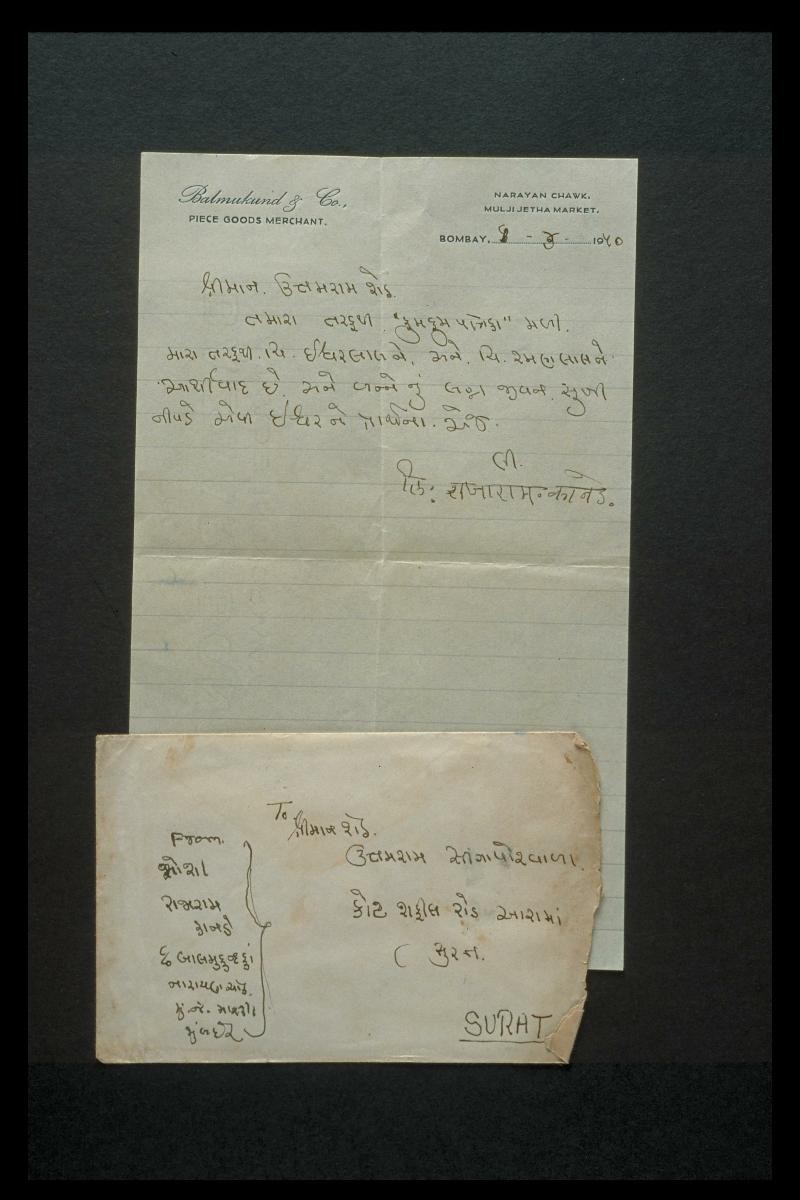 Balmukund & Co.,
PIECE GOODS MERCHANT.
NARAYAN CHAWK.
MULJI JETHA MARKET.
BOMBAY. 1940
શ્રીમાન. ઉત્તમરામ શેઠ.
તમારા તરફથી "કુમકુમ પત્રિકા" મળી.
મારા તરફથી. ચિ. ઈશ્વરલાલને, અને. ચિ. રમણલાલને
આર્શીવાદ છે. અને બન્ને નું લગ્ન જીવન. સુખી
નીવડે એવી ઈશ્વરને પ્રાર્થના. એજ.
લી.
लि: राजाराम कानडे.
To શ્રીમાન શેઠ.
ઉત્તમરામ
કોટ શફીલ રોડ
( સુરત.
SURAT
From.
રાજારામ
કાનડે
બાલમુકુન્દ કું
નારાયણ ચોક.
મું. જે. મારકીટ
મુંબઈ ૨